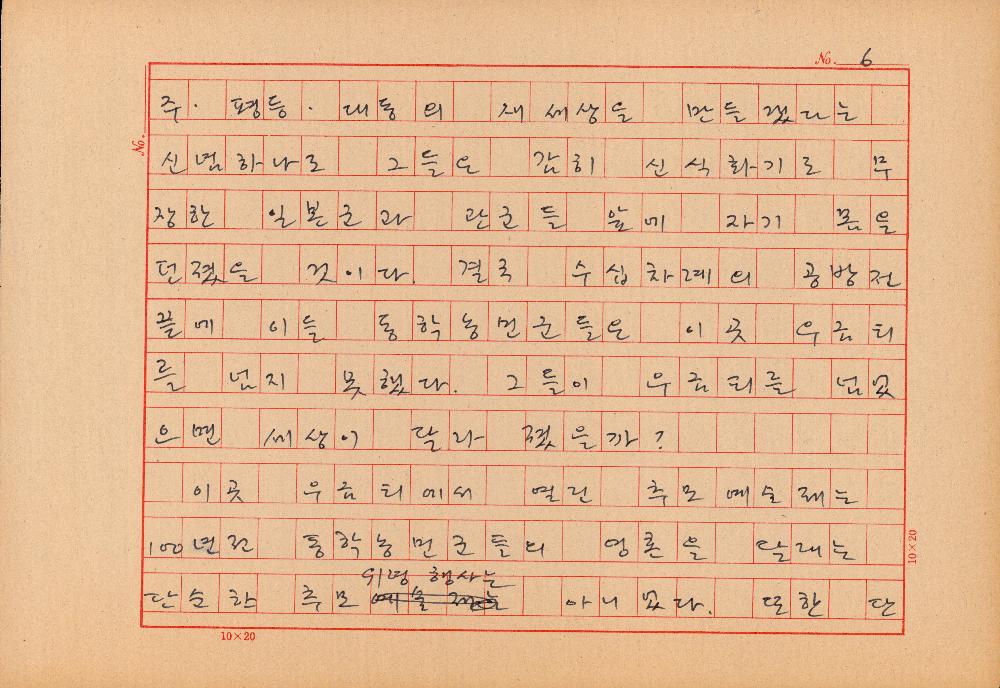 No. 6
No.
주· 평등·대동의 새 세상을 만들겠다는
신념하나로 그들은 감히 신식화기로 무
장한 일본군과 관군들 앞에 자기 몸을
던졌을 것이다. 결국 수십차례의 공방전
끝에 이들 동학농민군들은 이곳 우금티
를 넘지 못했다. 그들이 우금티를 넘었
으면 세상이 달라 졌을까?
이곳 우금티에서 열린 추모예술제는
100년전 동학농민군들의 영혼을 달래는
위령 행사는
단순한 추모 예술제는 아니었다. 또한 단
10×20
10×20